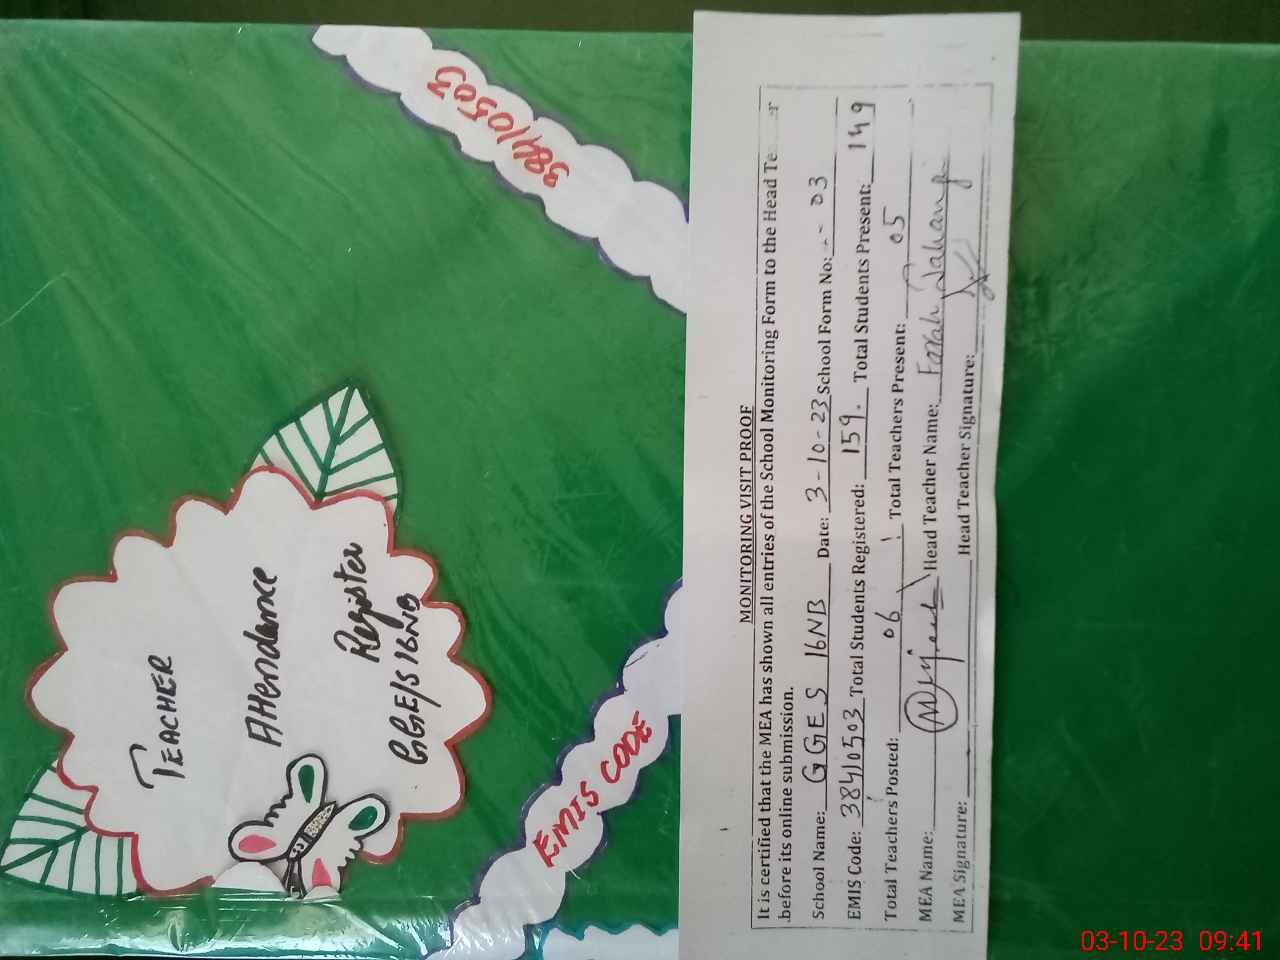 38410503
TEACHER
Attendance
Register
GGE/S16NB
EMIS CODE
MONITORING VISIT PROOF
It is certified that the MEA has shown all entries of the School Monitoring Form to the Head
before its online submission.
School Name: GGES 16NB Date: 3-10-23 School Form No: 03
EMIS Code: 38410503 Total Students Registered: 159. Total Students Present: 149
Total Teachers Posted: 06 Total Teachers Present: 05
MEA Name: Head Teacher Name: Farah Jahangir
MEA Signature: Head Teacher Signature:
03-10-23 09:41